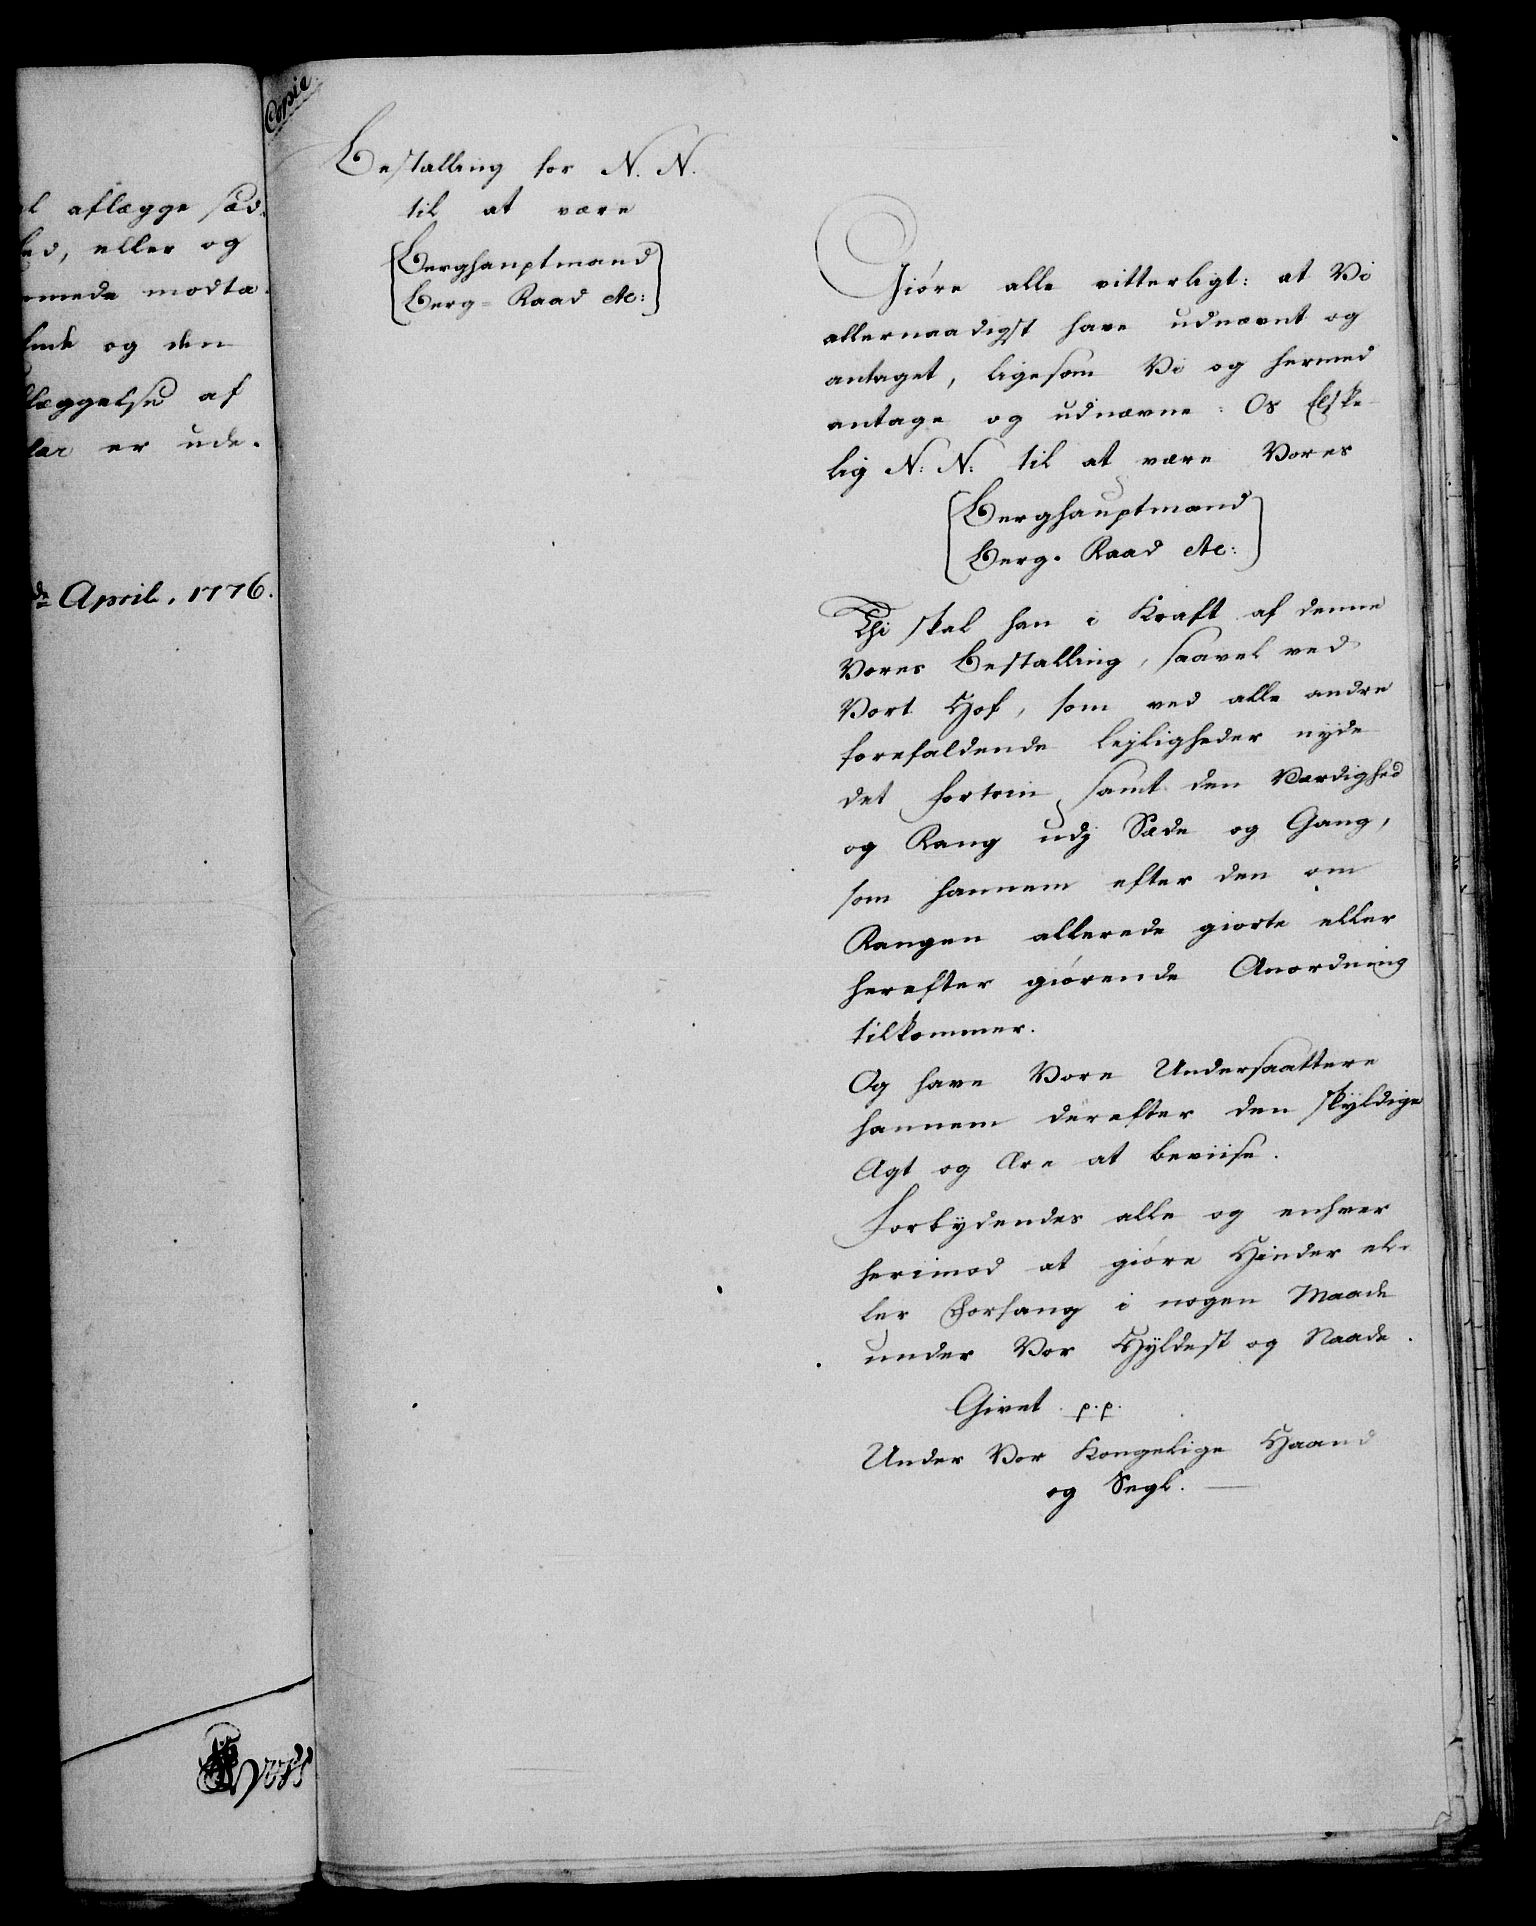 aflægge sæd.
eller og
modta.
og den
læggelse af
er ude.
April, 1776.
Copie.
Bestalling for N. N.
til at være
Berghauptmand
Berg-Raad etc:
Giöre alle vitterligt: at Vi
allernaadigst have udnævnt og
antaget, ligesom Vi og hermed
antage og udnævne: Os Elske-
lig N: N: til at være Vores
Berghauptmand
Berg-Raad etc:
Thi skal han i Kraft af denne
Vores Bestalling, saavel ved
Vort Hof, som ved alle andre
forefaldende Lejligheder nyde
det fortrin samt den Værdighed
og Rang udj Sæde og Gang,
som hannem efter den om
Rangen allerede giorte eller
herefter giörende Anordning
tilkommer.
Og have Vore Undersaattere
hannem derefter den skyldige
Agt og Ære at beviise.
Forbydendes alle og enhver
herimod at giöre Hinder el-
ler Forfang i nogen Maade
under Vor Hyldest og Naade.
Givet p.p.
Under Vor Kongelige Haand
og Segl.